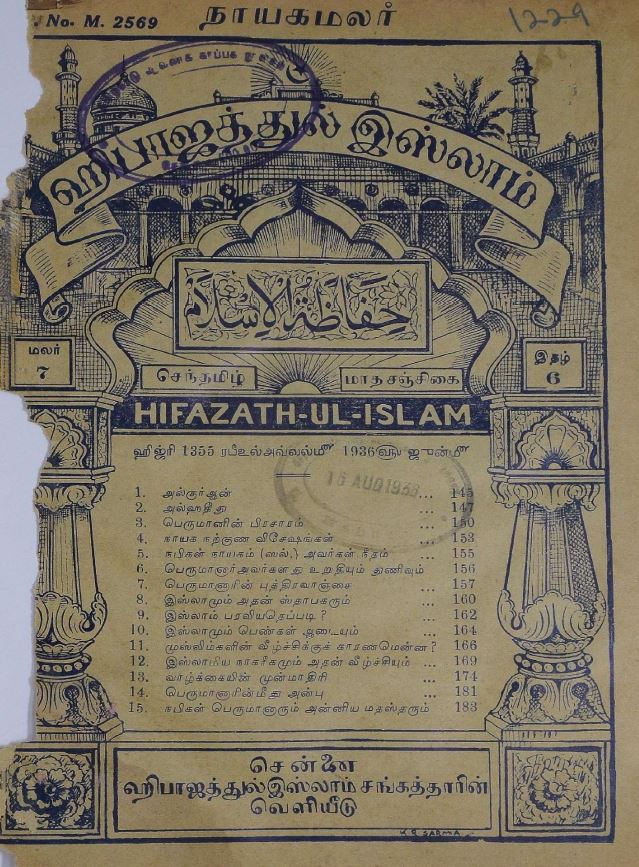 No. M. 2569
நாயகமலர்
1229
ஹிபாஜத்துல் இஸ்லாம்
حفاظة الإسلام
மலர்
7
இதழ்
6
செந்தமிழ்
மாதசஞ்சிகை
HIFAZATH-UL-ISLAM
ஹிஜ்ரி 1355 ரபீஉல்அவ்வல்௴ 1936௵ ஜுன்௴
16 AUG 1938
1. அல்குர்ஆன் ... 145
2. அல்ஹதீது ... 147
3. பெருமானின் பிரசாரம் ... 150
4. நாயக நற்குண விசேஷங்கள் ... 153
5. நபிகள் நாயகம் (ஸல்.) அவர்கள் நீதம் ... 155
6. பெருமானாரவர்களது உறுதியும் துணிவும் 156
7. பெருமானாரின் புத்திரவாஞ்சை ... 157
8. இஸ்லாமும் அதன் ஸ்தாபகரும் ... 160
9. இஸ்லாம் பரவியதெப்படி? ... 162
10. இஸ்லாமும் பெண்கள் ஆடையும் ... 164
11. முஸ்லிம்களின் வீழ்ச்சிக்குக் காரணமென்ன? 166
12. இஸ்லாமிய நாகரீகமும் அதன் வீழ்ச்சியும் ... 169
13. வாழ்க்கையின் முன்மாதிரி ... 174
14. பெருமானாரின்மீது அன்பு ... 181
15. நபிகள் பெருமானாரும் அன்னிய மதஸ்தரும் 183
சென்னை
ஹிபாஜத்துல்இஸ்லாம் சங்கத்தாரின்
வெளியீடு
K R SARMA